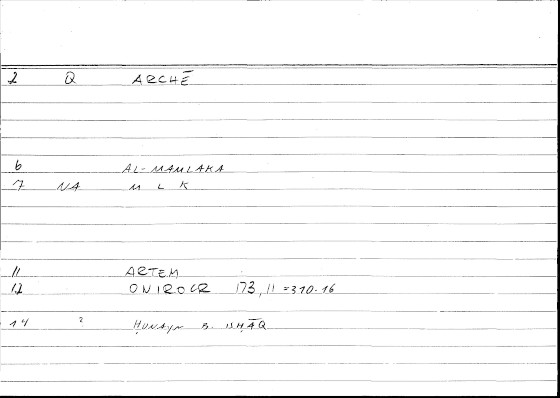 2 Q ARCHĒ
6 AL-MAMLAKA
7 NA M L K
11 ARTEM
12 ONIROCR 173,11=310.16
14 2 ḤUNAYN B. ISḤĀQ